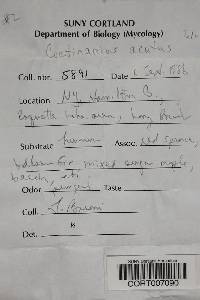 SUNY CORTLAND
Department of Biology (Mycology)
Cortinarius acutus
Coll. nbr. 5891 Date 6 Sept. 1986
Location NY, Hamilton Co.
Raquette Lake area, Long
Substrate humus Assoc. red spruce,
balsam fir, mixed sugar maple,
beech, etc.
Odor Taste
Coll.
Det.
SUNY Cortland Herbarium
CORT007090